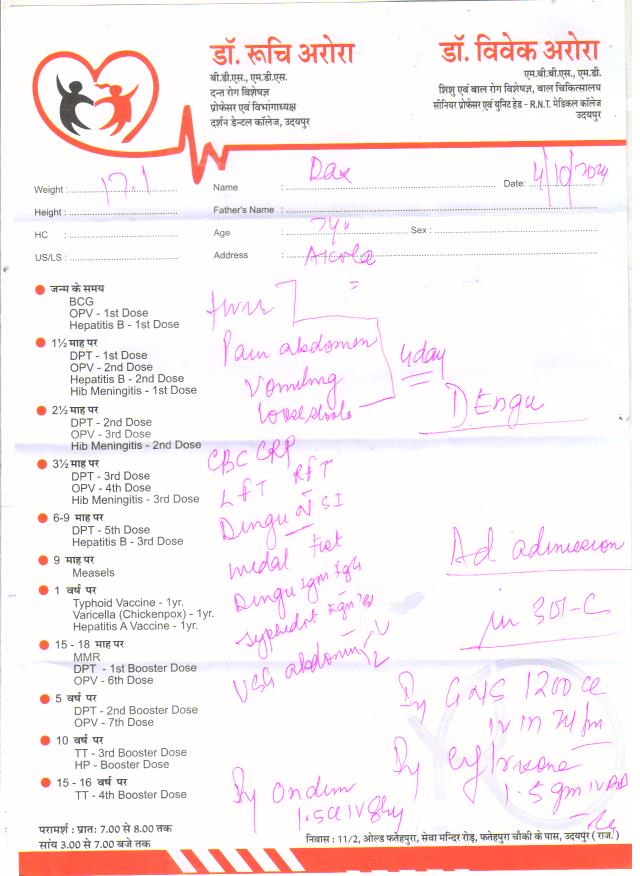 डॉ. रूचि अरोरा
बी.डी.एस., एम.डी.एस.
दन्त रोग विशेषज्ञ
प्रोफेसर एवं विभागाध्यक्ष
दर्शन डेन्टल कॉलेज, उदयपुर
डॉ. विवेक अरोरा
एम.बी.बी.एस., एम.डी.
शिशु एवं बाल रोग विशेषज्ञ, बाल चिकित्सालय
सीनियर प्रोफेसर एवं यूनिट हेड - R.N.T. मेडिकल कॉलेज
उदयपुर
Weight : 17.1 Name : Dax Date: 4/10/2024
Height : Father's Name :
HC : Age : Sex :
US/LS : Address :
जन्म के समय
BCG
OPV - 1st Dose
Hepatitis B - 1st Dose
1½ माह पर
DPT - 1st Dose
OPV - 2nd Dose
Hepatitis B - 2nd Dose
Hib Meningitis - 1st Dose
2½ माह पर
DPT - 2nd Dose
OPV - 3rd Dose
Hib Meningitis - 2nd Dose
3½ माह पर
DPT - 3rd Dose
OPV - 4th Dose
Hib Meningitis - 3rd Dose
6-9 माह पर
DPT - 5th Dose
Hepatitis B - 3rd Dose
9 माह पर
Measels
1 वर्ष पर
Typhoid Vaccine - 1yr.
Varicella (Chickenpox) - 1yr.
Hepatitis A Vaccine - 1yr.
15 - 18 माह पर
MMR
DPT - 1st Booster Dose
OPV - 6th Dose
5 वर्ष पर
DPT - 2nd Booster Dose
OPV - 7th Dose
10 वर्ष पर
TT - 3rd Booster Dose
HP - Booster Dose
15 - 16 वर्ष पर
TT - 4th Booster Dose
Pain abdomen
Vomiting
loose stools
4 day
D.Engu
CBC CRP
LFT RFT
Dingu NSI
Widal Test
Dingu Igm Igg
USG abdomin
Ad admission
in 301-C
GNS 1200 cc
IV in 24
1.5 gm IV BD
Ondem
1.5cc IV 8hy
परामर्श : प्रातः 7.00 से 8.00 तक
सांय 3.00 से 7.00 बजे तक
निवास : 11/2, ओल्ड फतेहपुरा, सेवा मन्दिर रोड़, फतेहपुरा चौकी के पास, उदयपुर ( राज. )